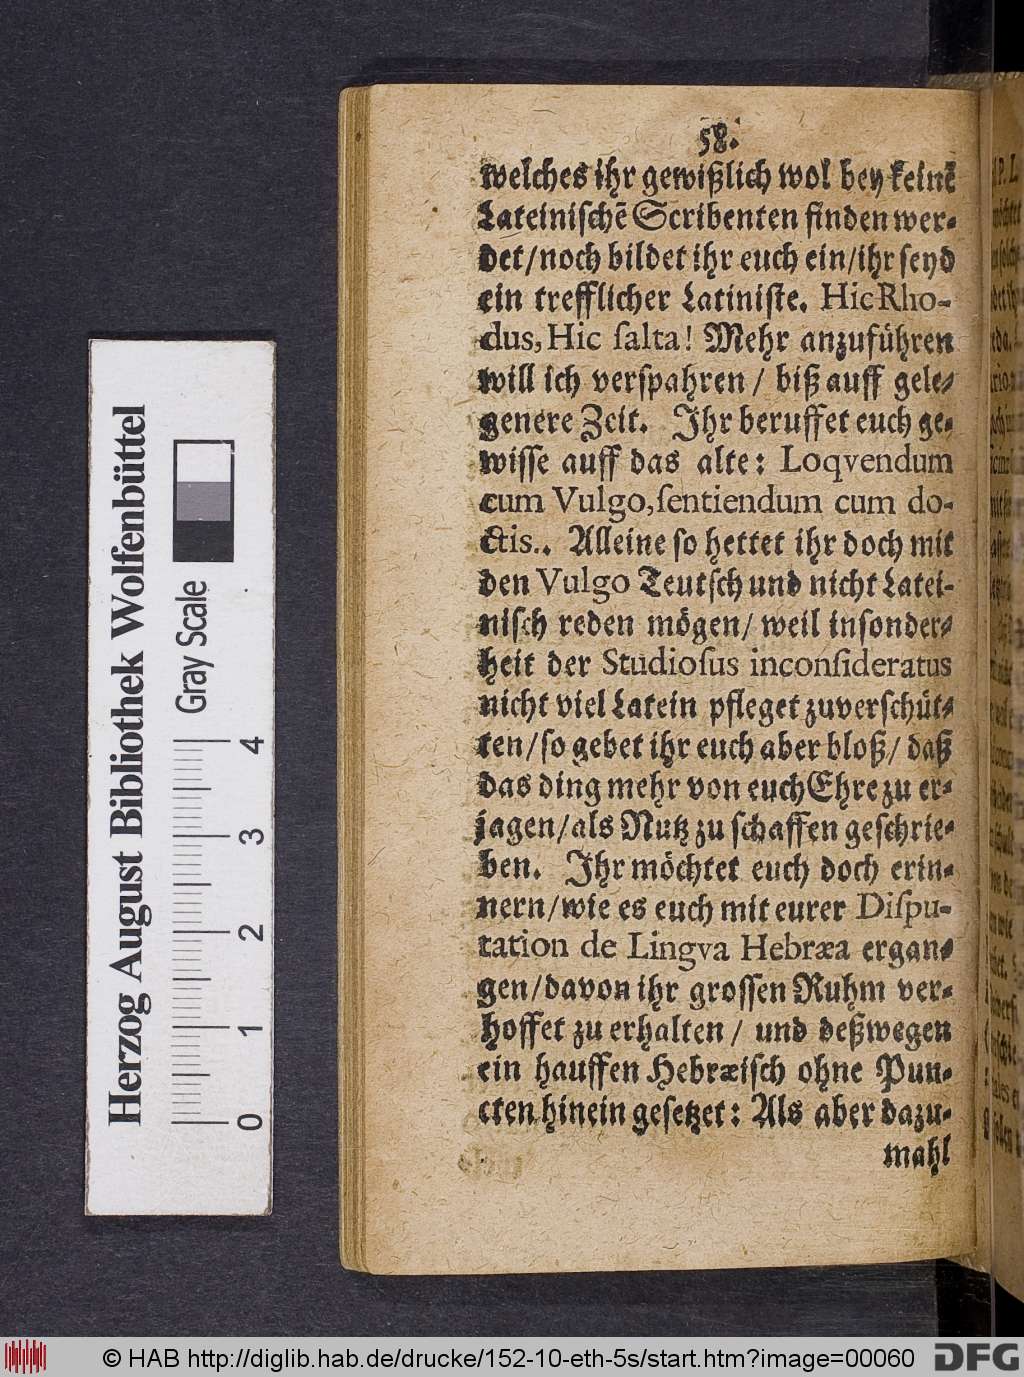 58.
welches ihr gewißlich wol bey keinẽ
Lateiniſchẽ Scribenten finden wer-
det/noch bildet ihr euch ein/ihr ſeyd
ein trefflicher Latiniſte. Hic Rho-
dus, Hic ſalta! Mehr anzuführen
will ich verſpahren/ biß auff gele-
genere Zeit. Ihr beruffet euch ge-
wiſſe auff das alte: Loqvendum
cum Vulgo, ſentiendum cum do-
ctis.. Alleine ſo hettet ihr doch mit
den Vulgo Teutſch und nicht Latei-
niſch reden mögen/ weil inſonder-
heit der Studioſus inconſideratus
nicht viel Latein pfleget zuverſchüt-
ten/ſo gebet ihr euch aber bloß/ daß
das ding mehr von euch Ehre zu er-
jagen/als Nutz zu ſchaffen geſchrie-
ben. Ihr möchtet euch doch erin-
nern/wie es euch mit eurer Diſpu-
tation de Lingva Hebræa ergan-
gen/davon ihr groſſen Ruhm ver-
hoffet zu erhalten/ und deßwegen
ein hauffen Hebræiſch ohne Pun-
cten hinein geſetzet: Als aber dazu-
mahl
Herzog August Bibliothek Wolfenbüttel
Gray Scale
0 1 2 3 4
© HAB http://diglib.hab.de/drucke/152-10-eth-5s/start.htm?image=00060
DFG